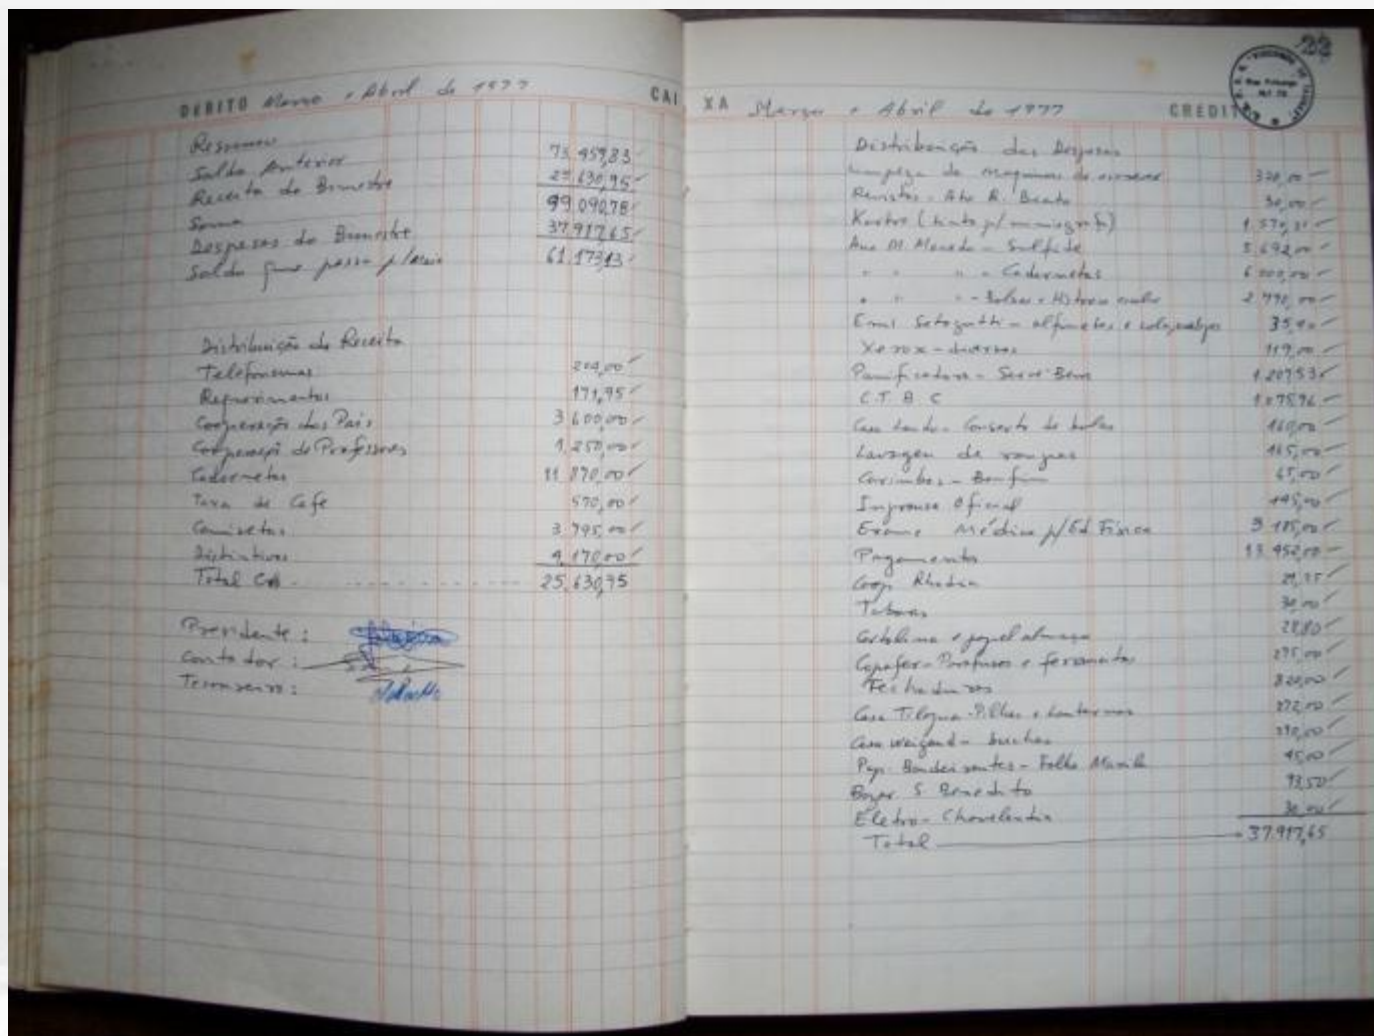 DEBITO Março e Abril de 1977 CAI
Resumo
Saldo Anterior 73.459,83
Receita do Bimestre 25.630,95
Soma 99.090,78
Despesas do Bimestre 37.917,65
Saldo que passa p/Maio 61.173,13
Distribuição da Receita
Telefonemas 204,00
Requerimentos 171,95
Cooperação dos Pais 3.600,00
Cooperação de Professores 1.250,00
Cadernetas 11.870,00
Taxa de Café 570,00
Camisetas 3.795,00
Distintivos 4.170,00
Total Cr$ 25.630,95
Presidente:
Contador:
Tesoureiro:
22
XA Março e Abril de 1977 CREDIT
Distribuição das Despesas
Limpeza de maquinas de escrever 320,00
Revistas - 30,00
(tinta p/ mimiografo) 1.570,
Ana M. Macedo - Sulfite 5.692,00
" " " - Cadernetas 6.000,00
" " " - Historico escolar 2.790,00
- alfinetes e 35,90
Xerox - diversos 119,00
Panificadora - Serve-Bem 1.207,53
C.T.B.C 1.075,76
- Conserto de bolas 160,00
Lavagem de roupas 165,00
Carimbos - Bonfim 65,00
Imprensa Oficial 195,00
Exame Médico p/Ed Física 3.185,00
Pagamentos 13.950,00
Coop. Rhodia
30,00
Cartolina e papel almaço 28,80
Copafer - Parafusos e ferramentas 275,00
Fechaduras 820,00
Casa - Pilhas e Lanternas 272,00
Casa Weigand - buchas
Pap. Bandeirantes - Folha 45,00
S. Benedito 93,50
Eletro - Chavelandia 30,00
Total 37.917,65